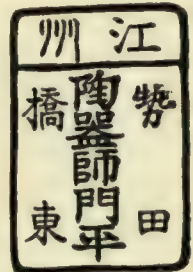 江州
勢田
陶器師門平
橋東